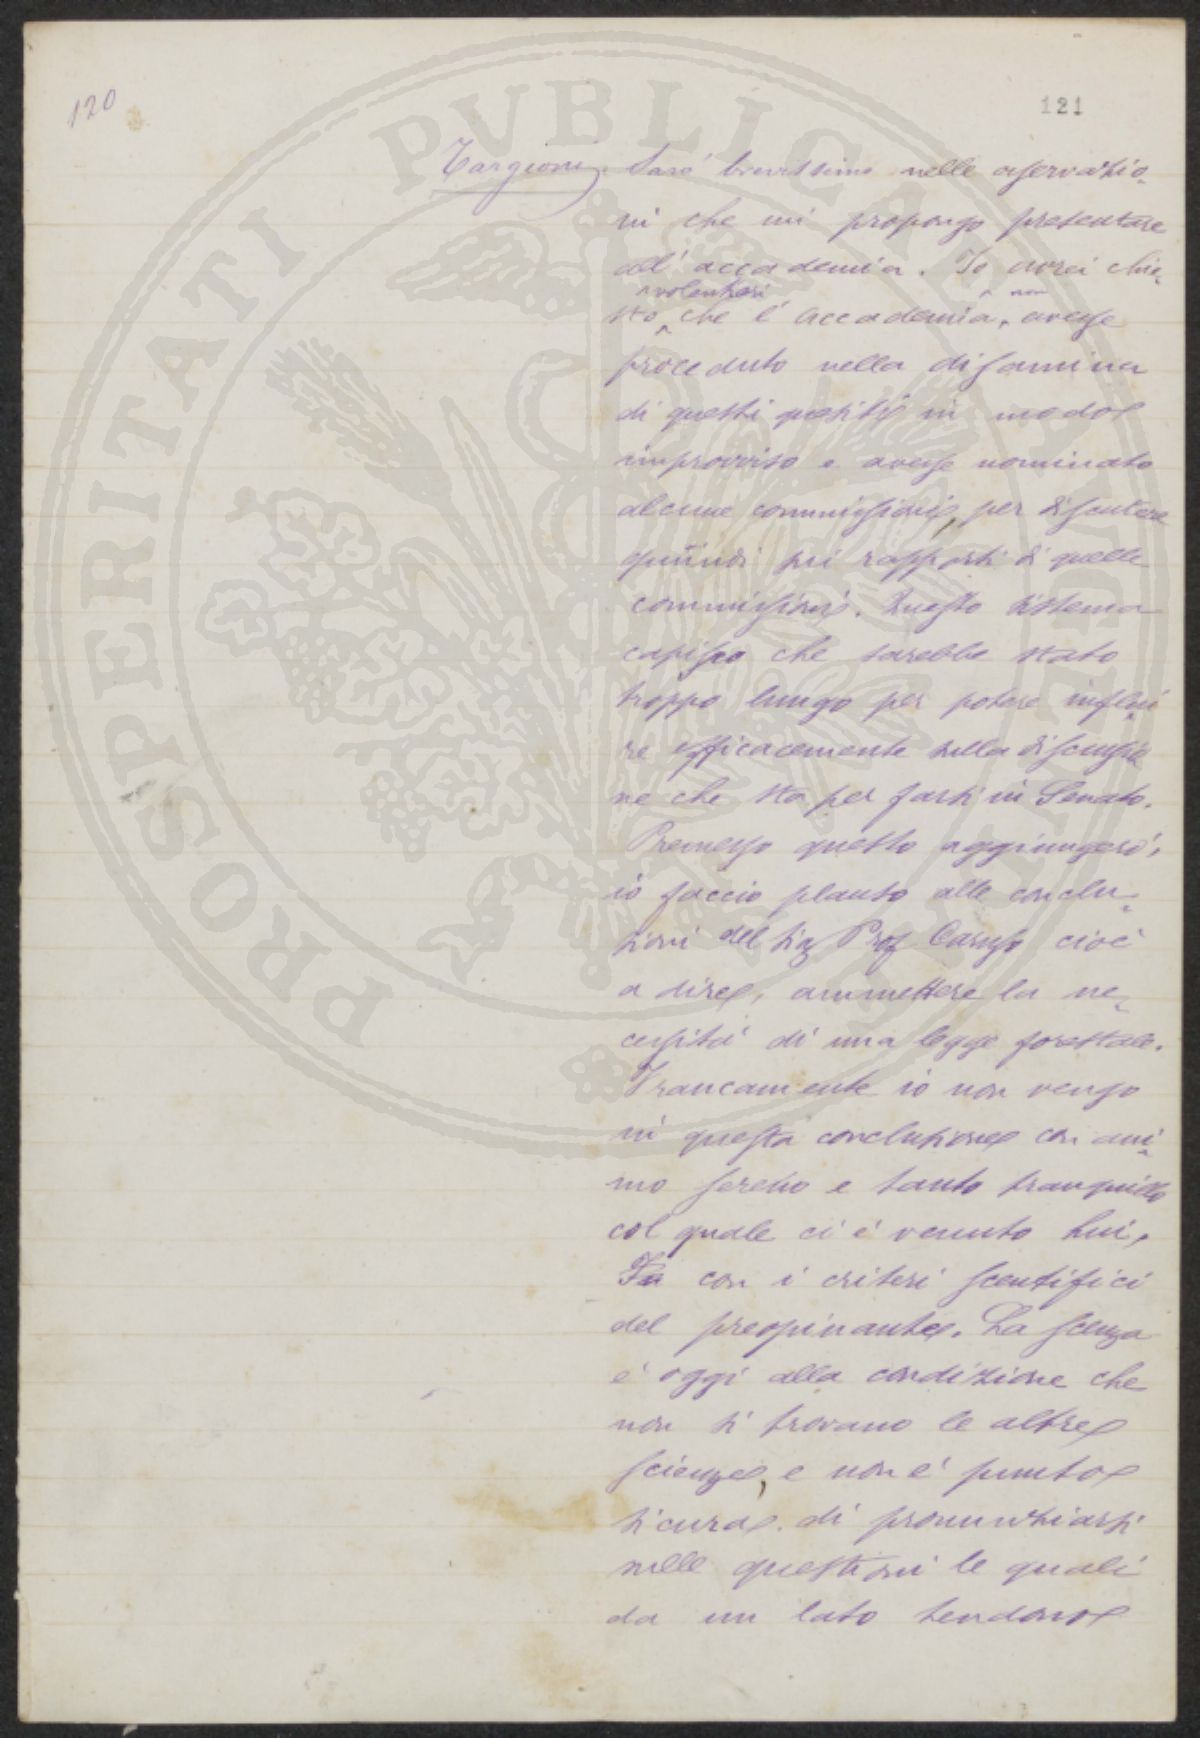 120
121
Targioni. Sarò brevissimo nelle osservazio-
ni che mi propongo presentare
all' accademia. Io avrei chie-
volentieri non
sto che l' accademia, avesse
proceduto nella disamina
di questi quesiti in modo
improvviso e avesse nominato
alcune commissioni, per discutere
quindi sui rapporti di quelle
commissioni. Questo sistema
capisco che sarebbe stato
troppo lungo per potere influi
re efficacemente sulla discussio
ne che sta per farsi in Senato.
Premesso questo aggiungerò,
io faccio plauso alle conclu-
sioni del Sig Prof Caruso cioè
a dire, ammettere la ne-
cessità di una legge forestale.
Francamente io non vengo
in questa conclusione con ani-
mo sereno e tanto tranquillo
col quale ci è venuto lui,
con i criteri scentifici
del preopinante. La scenza
è oggi alla condizione che
non si trovano le altre
scienze, e non è punto
sicura. di pronunziarsi
nelle questioni le quali
da un lato tendono
PROSPERITATI PVBLICAE